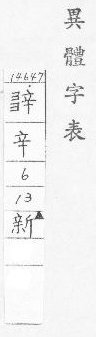 異體字表
14647
辛
6
13
新